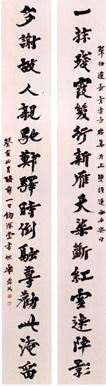 一抹殘霞幾行新雁天染斷紅雲迷陣影
多謝故人親馳鄭驛時倒融尊勸此淹留